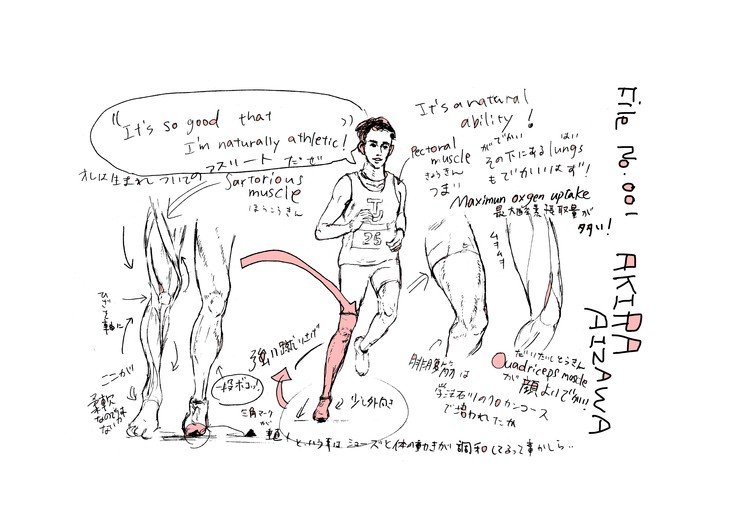 "It's so good that
I'm naturally athletic!"
オレは生まれついての
アスリートだぜ
Sartorious
muscle
ほうこうきん
It's a natural
ability!
Pectoral
muscle
きょうきん
つまり
がでかい
その下にあるlungs
はい
もでかいはず!
Maximun oxgen uptake
最大酸素摂取量が
多い!
ムキムキ
File No.001
AKIRA
AIZAWA
T
25
ひざを軸に
ここが
柔軟
なのでは
ないか
強い蹴り上げ
一段ボコッ!
三角マーク
が
少し外向き
腓腹筋は
学法石川のクロカンコース
で培われたか
だいたいしとうきん
Quadriceps muscle
が顔よりでかい
という事はシューズと体の動きが調和してるって事かしら..